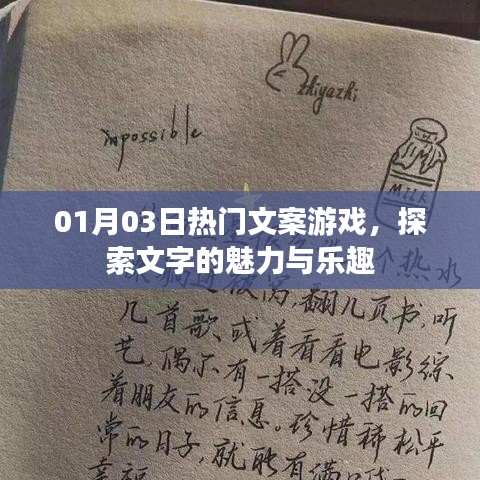 zhiyazhi
impossible
MILK
01月03日热门文案游戏，探
索文字的魅力与乐趣
个热水
翻几页书，听
几首歌、或着看看电影综
艺，偶尔有一搭没一搭的回
着朋友的信息。珍惜稀松平
常的日子，就能有满
幸福